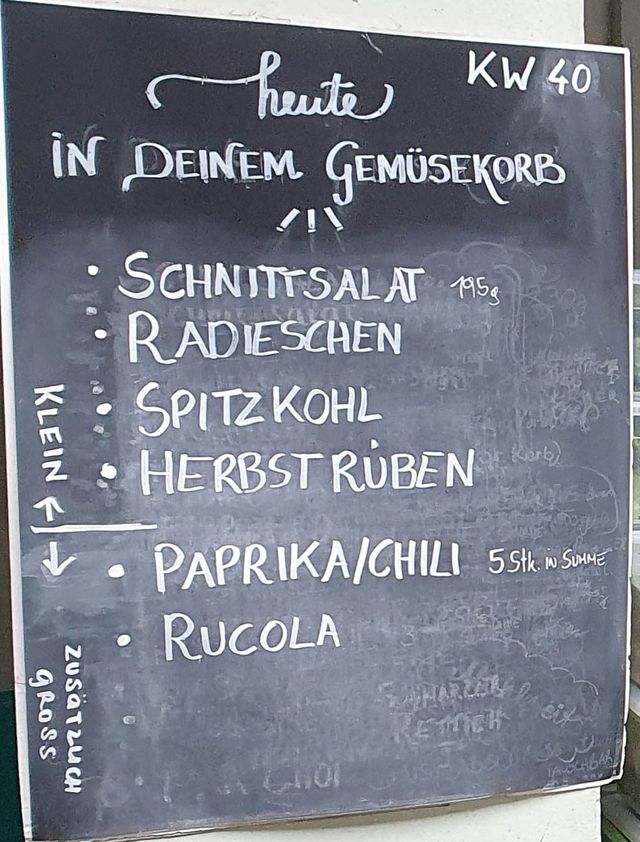 KW 40
heute
IN DEINEM GEMÜSEKORB
• SCHNITTSALAT 195g
• RADIESCHEN
• SPITZKOHL
• HERBSTRÜBEN
KLEIN ←
→ ZUSÄTZLICH
GROSS
• PAPRIKA/CHILI 5 Stk. IN SUMME
• RUCOLA
RETTICH